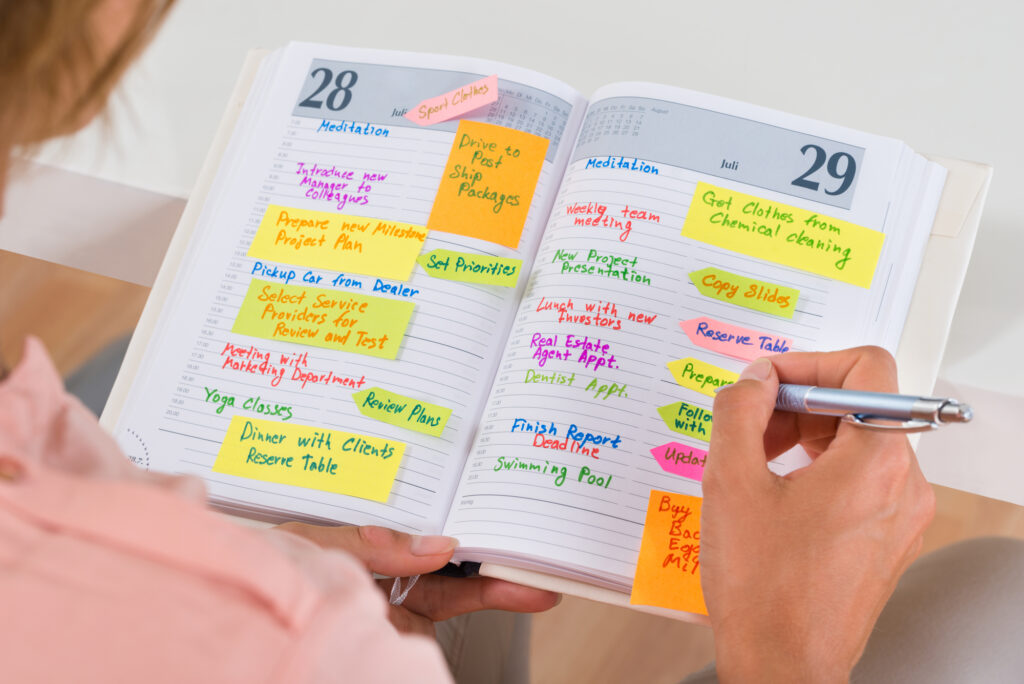 28
Juli
Sport Clothes
Meditation
Drive to
Post
Ship
Packages
Introduce new
Manager to
Colleagues
Prepare new Milestone
Project Plan
Set Priorities
Pickup Car from Dealer
Select Service
Providers for
Review and Test
Meeting with
Marketing Department
Review Plans
Yoga Classes
Dinner with Clients
Reserve Table
August
Juli
29
Meditation
Get Clothes from
Chemical cleaning
Weekly team
meeting
New Project
Presentation
Copy Slides
Lunch with new
Investors
Reserve Table
Real Estate
Agent Appt.
Prepare
Dentist Appt.
Follow
with
Finish Report
Deadline
Updat
Swimming Pool
Buy
Bac
Egg
Mi